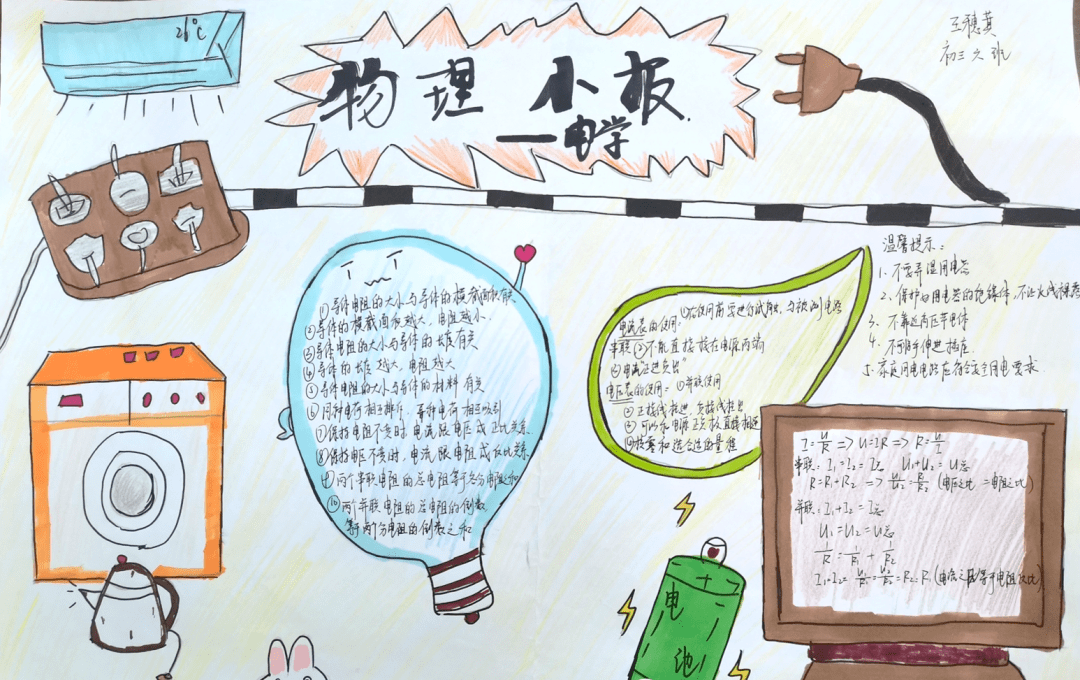 26℃
物理小报
—电学
王穗黄
初三六班
①导体电阻的大小与导体的横截面积有关
②导体的横截面积越大，电阻越小.
③导体电阻的大小与导体的长度有关
④导体的长度越大，电阻越大
⑤导体电阻的大小与导体的材料有关
⑥同种电荷相互排斥，异种电荷相互吸引
⑦保持电阻不变时，电流跟电压成正比关系.
⑧保持电压不变时，电流跟电阻成反比关系.
⑨两个串联电阻的总电阻等于各分电阻之和
⑩两个并联电阻的总电阻的倒数
等于两个分电阻的倒数之和
电流表的使用：①在使用前要进行试触，与被测电路
串联②不能直接接在电源两端
③电流"正进负出"
电压表的使用：①并联使用
②正接线柱进，负接线柱出
③可以和电源正负极直接相连
④按需和适合适的量程
温馨提示：
1、不要弄湿用电器
2、保护好用电器的绝缘体，不让火线裸露
3、不靠近高压带电体
4、不可用手伸进插座.
5、家庭用电电路应符合安全用电要求
I=U/R => U=IR => R=U/I
串联：I₁=I₂=I总 U₁+U₂=U总
R=R₁+R₂ => U₁/U₂=R₁/R₂ (电压之比=电阻之比)
并联：I₁+I₂=I总
U₁=U₂=U总
1/R=1/R₁+1/R₂
(电流之比等于电阻反比)
电池
+